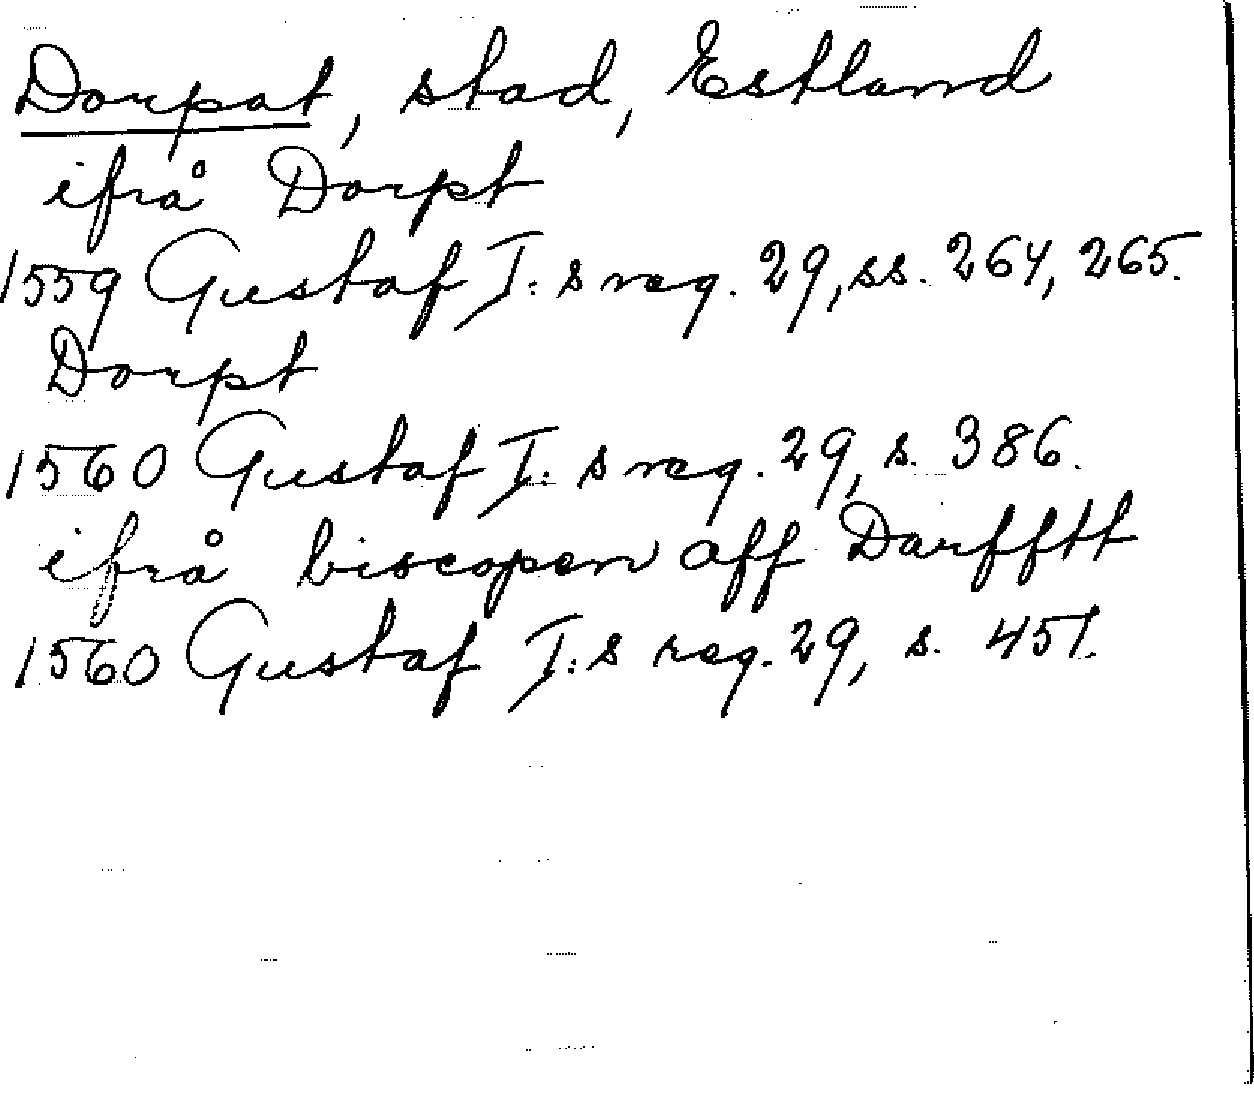 Dorpat, stad, Estland
ifrå Dorpt
1559 Gustaf I:s reg. 29, ss. 264, 265.
Dorpt
1560 Gustaf I:s reg. 29, s. 386.
ifrå biscopen aff Darfftt
1560 Gustaf I:s reg. 29, s. 451.